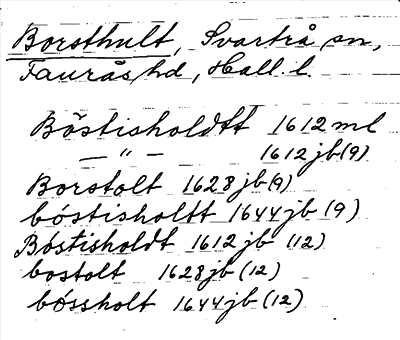 Borsthult, Svartrå sn,
Faurås hd, Hall. l.
Böstisholdtt 1612 ml
— " — 1612 jb (9)
Borstolt 1628 jb (9)
bóstisholtt 1644 jb (9)
Bóstisholdt 1612 jb (12)
bostolt 1628 jb (12)
bóssholt 1644 jb (12)